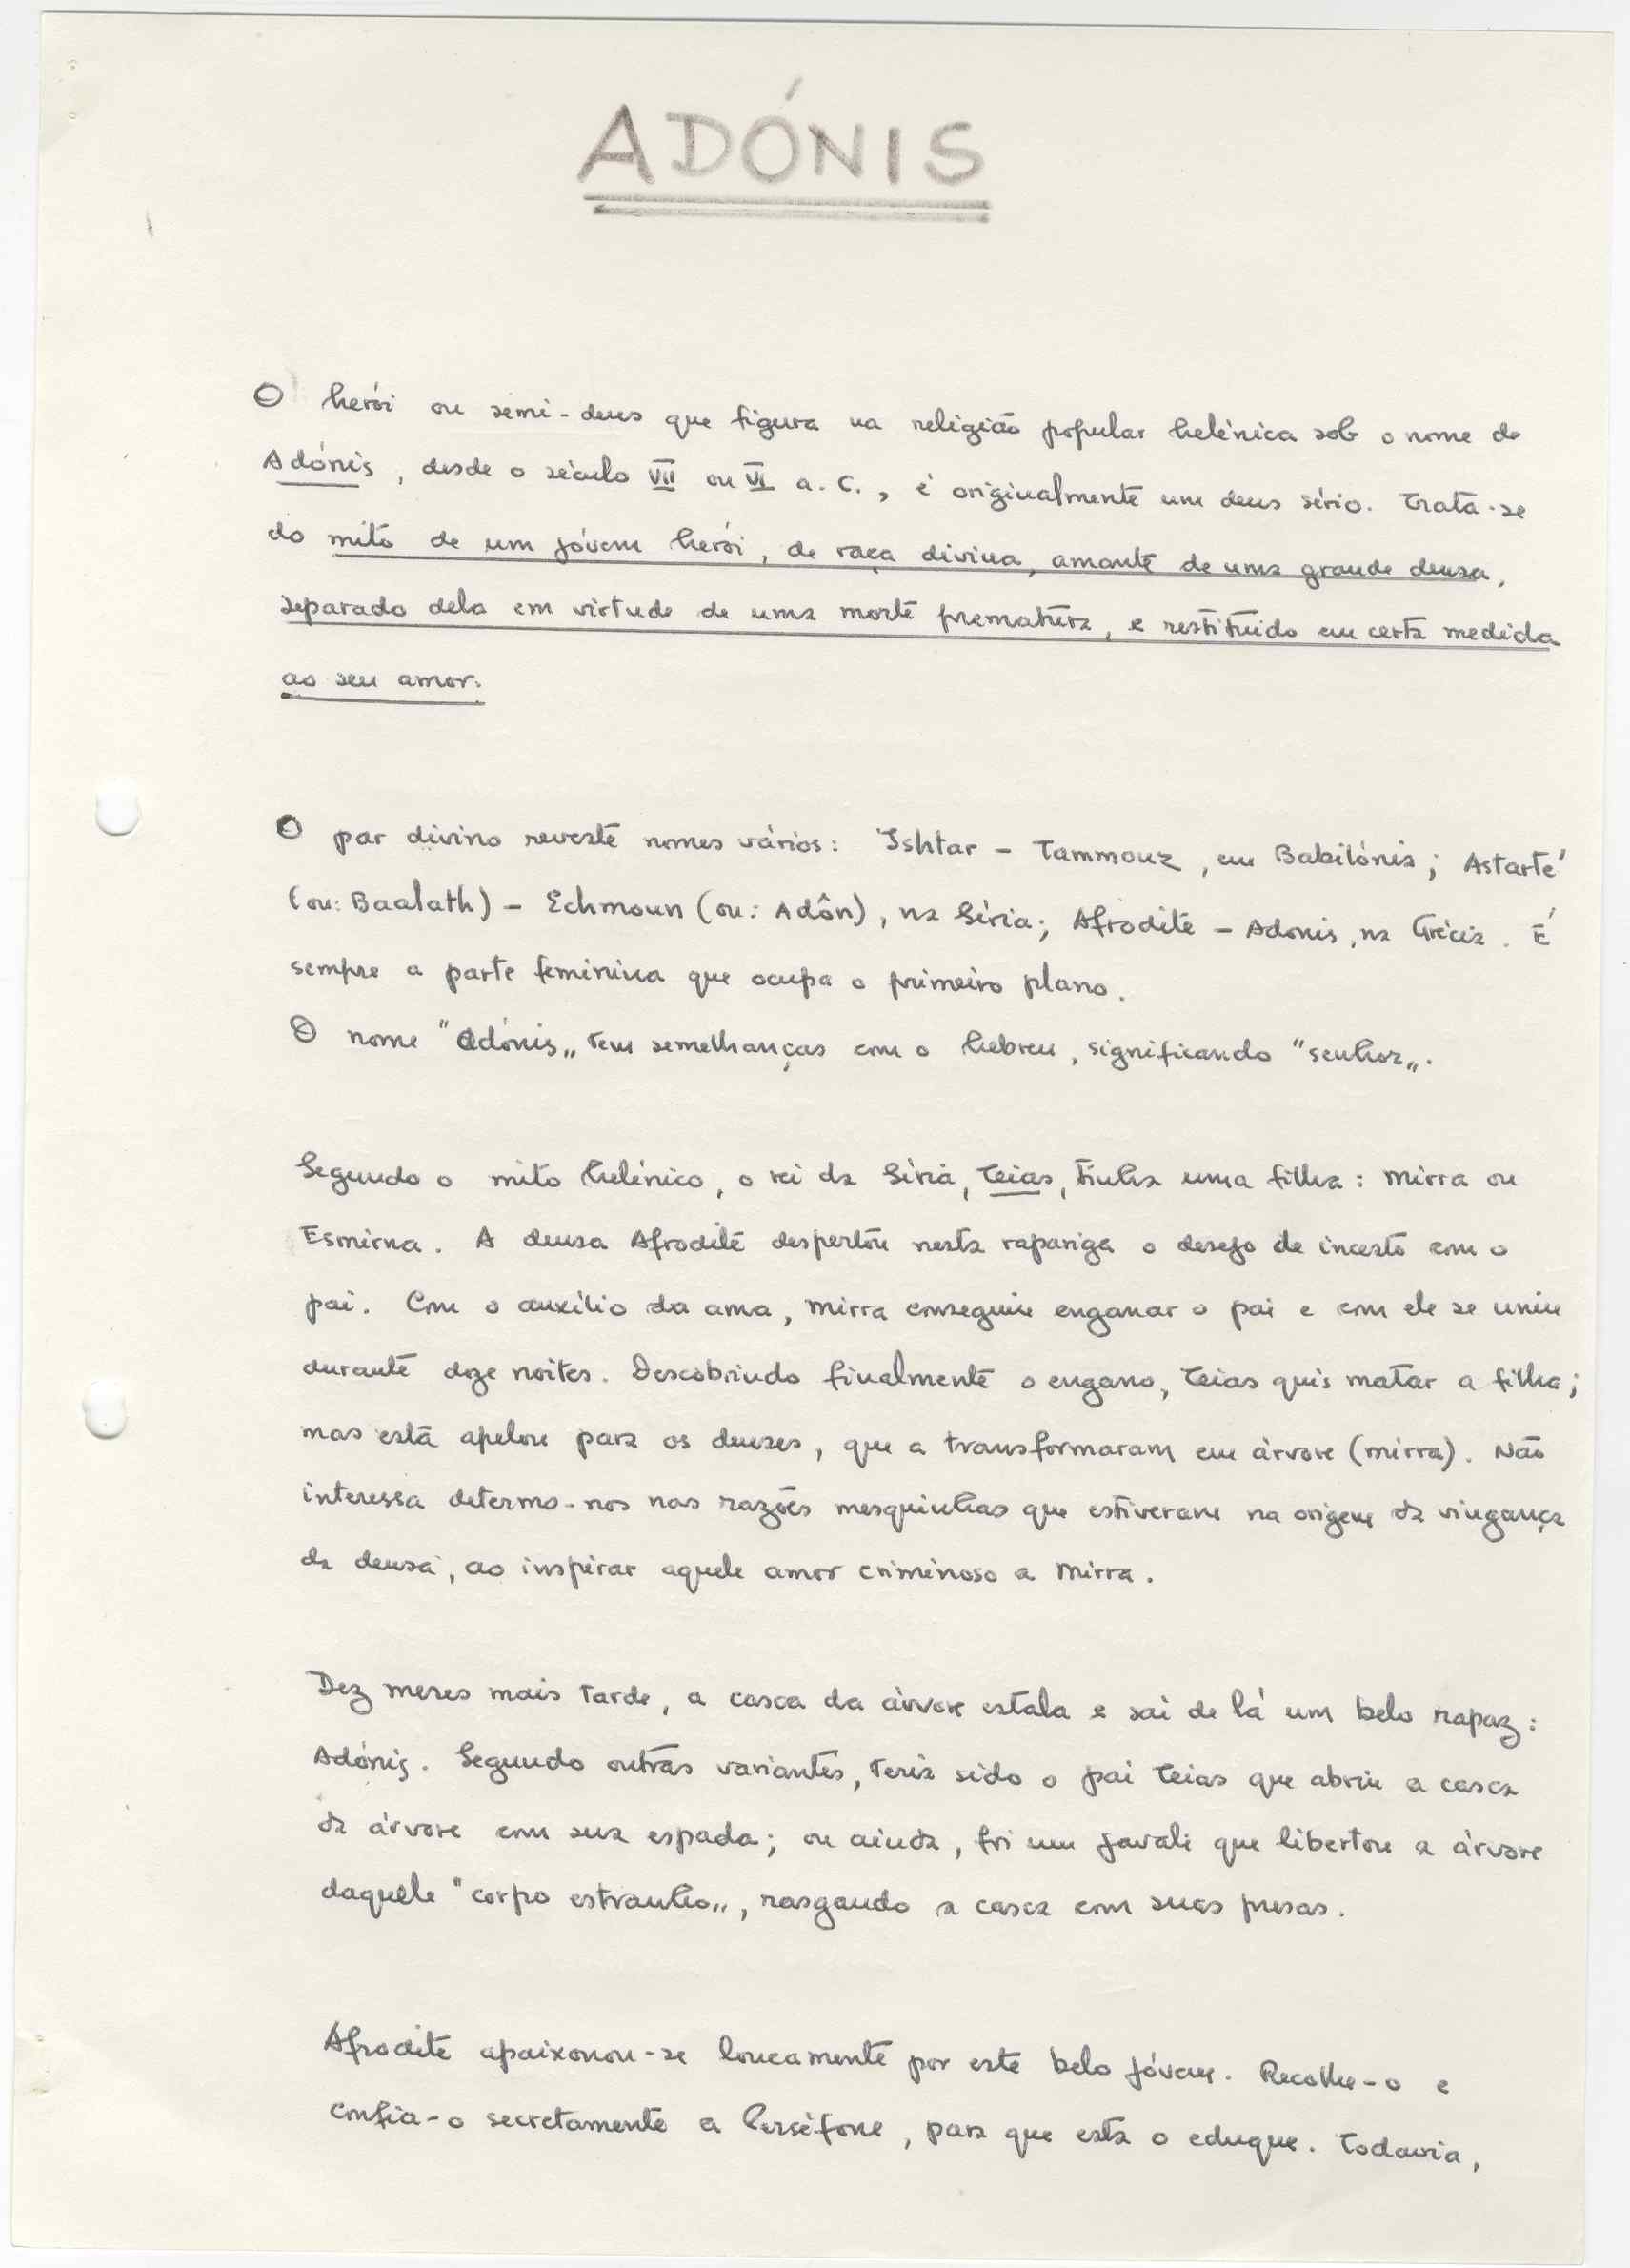 ADÓNIS
O herói ou semi-deus que figura na religião popular helénica sob o nome de
Adónis, desde o século VII ou VI a.C., é originalmente um deus sírio. Trata-se
do mito de um jóvem herói, de raça divina, amante de uma grande deusa,
separado dela em virtude de uma morte prematura, e restituido em certa medida
ao seu amor.
O par divino reveste nomes vários: Ishtar - Tammouz, em Babilónia; Astarté
(ou: Baalath) - Echmoun (ou: Adôn), na Síria; Afrodite - Adonis, na Grécia. É
sempre a parte feminina que ocupa o primeiro plano.
O nome "Adónis„ tem semelhanças com o hebreu, significando "senhor„.
Segundo o mito helénico, o rei da Síria, Teias, tinha uma filha: Mirra ou
Esmirna. A deusa Afrodite despertou nesta rapariga o desejo de incesto com o
pai. Com o auxílio da ama, Mirra conseguiu enganar o pai e com ele se uniu
durante doze noites. Descobrindo finalmente o engano, Teias quis matar a filha;
mas esta apelou para os deuses, que a transformaram em árvore (mirra). Não
interessa determo-nos nas razões mesquinhas que estiveram na origem da vingança
da deusa, ao inspirar aquele amor criminoso a Mirra.
Dez meses mais tarde, a casca da árvore estala e sai de lá um belo rapaz:
Adónis. Segundo outras variantes, teria sido o pai Teias que abriu a casca
da árvore com sua espada; ou ainda, foi um javali que libertou a árvore
daquêle "corpo estranho„, rasgando a casca com suas presas.
Afrodite apaixonou-se loucamente por este belo jóvem. Recolhe-o e
confia-o secretamente a Perséfone, para que esta o eduque. Todavia,